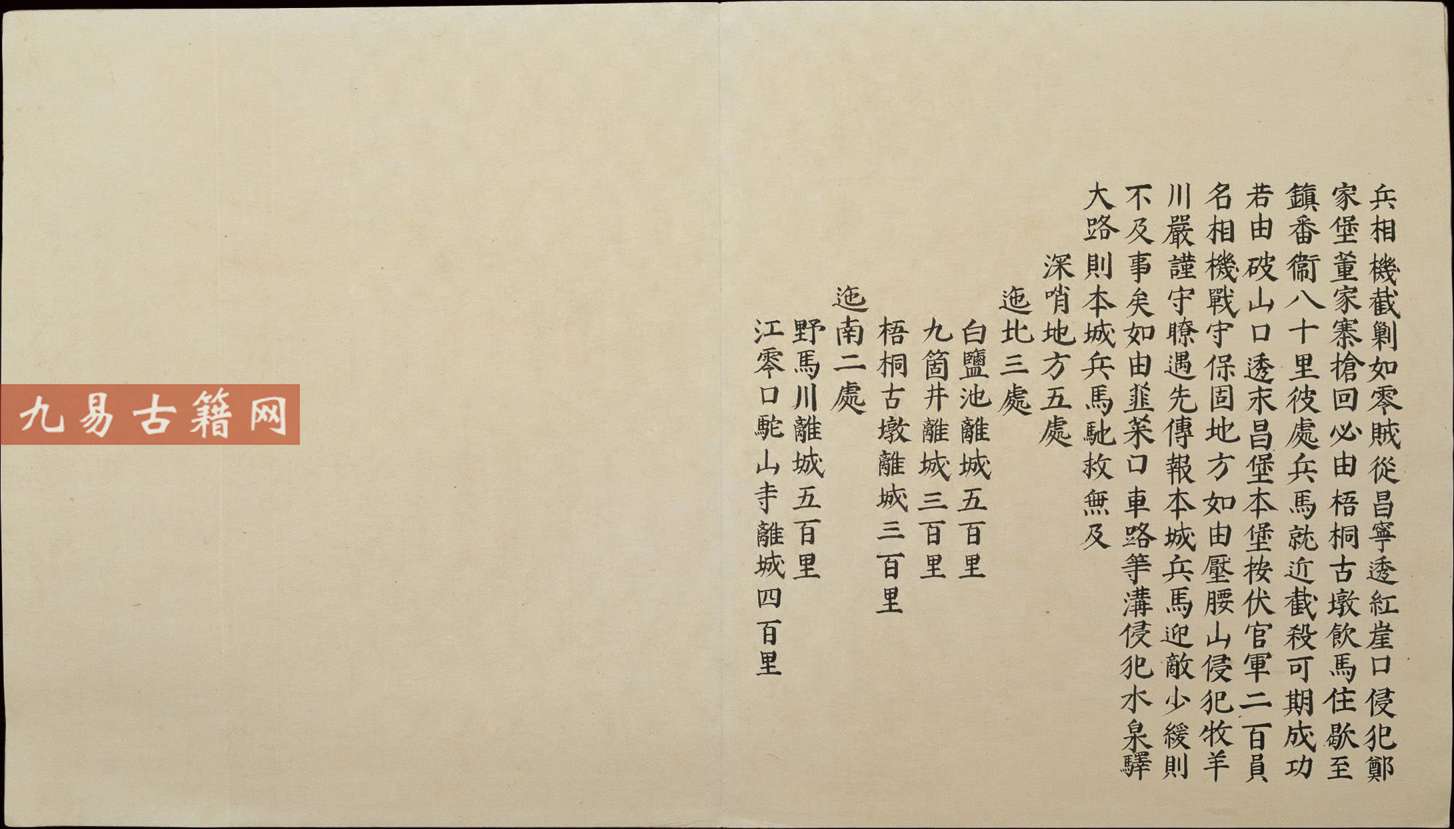 兵相機截剿如零賊從昌寧透紅崖口侵犯鄭
家堡董家寨搶回必由梧桐古墩飲馬住歇至
鎮番衞八十里彼處兵馬就近截殺可期成功
若由破山口透永昌堡本堡按伏官軍二百員
名相機戰守保固地方如由壓腰山侵犯牧羊
川嚴謹守瞭遇先傳報本城兵馬迎敵少緩則
不及事矣如由韮菜口車路等溝侵犯水泉驛
大路則本城兵馬馳救無及
深哨地方五處
迤北三處
白鹽池離城五百里
九箇井離城三百里
梧桐古墩離城三百里
迤南二處
野馬川離城五百里
江零口駝山寺離城四百里
九易古籍网